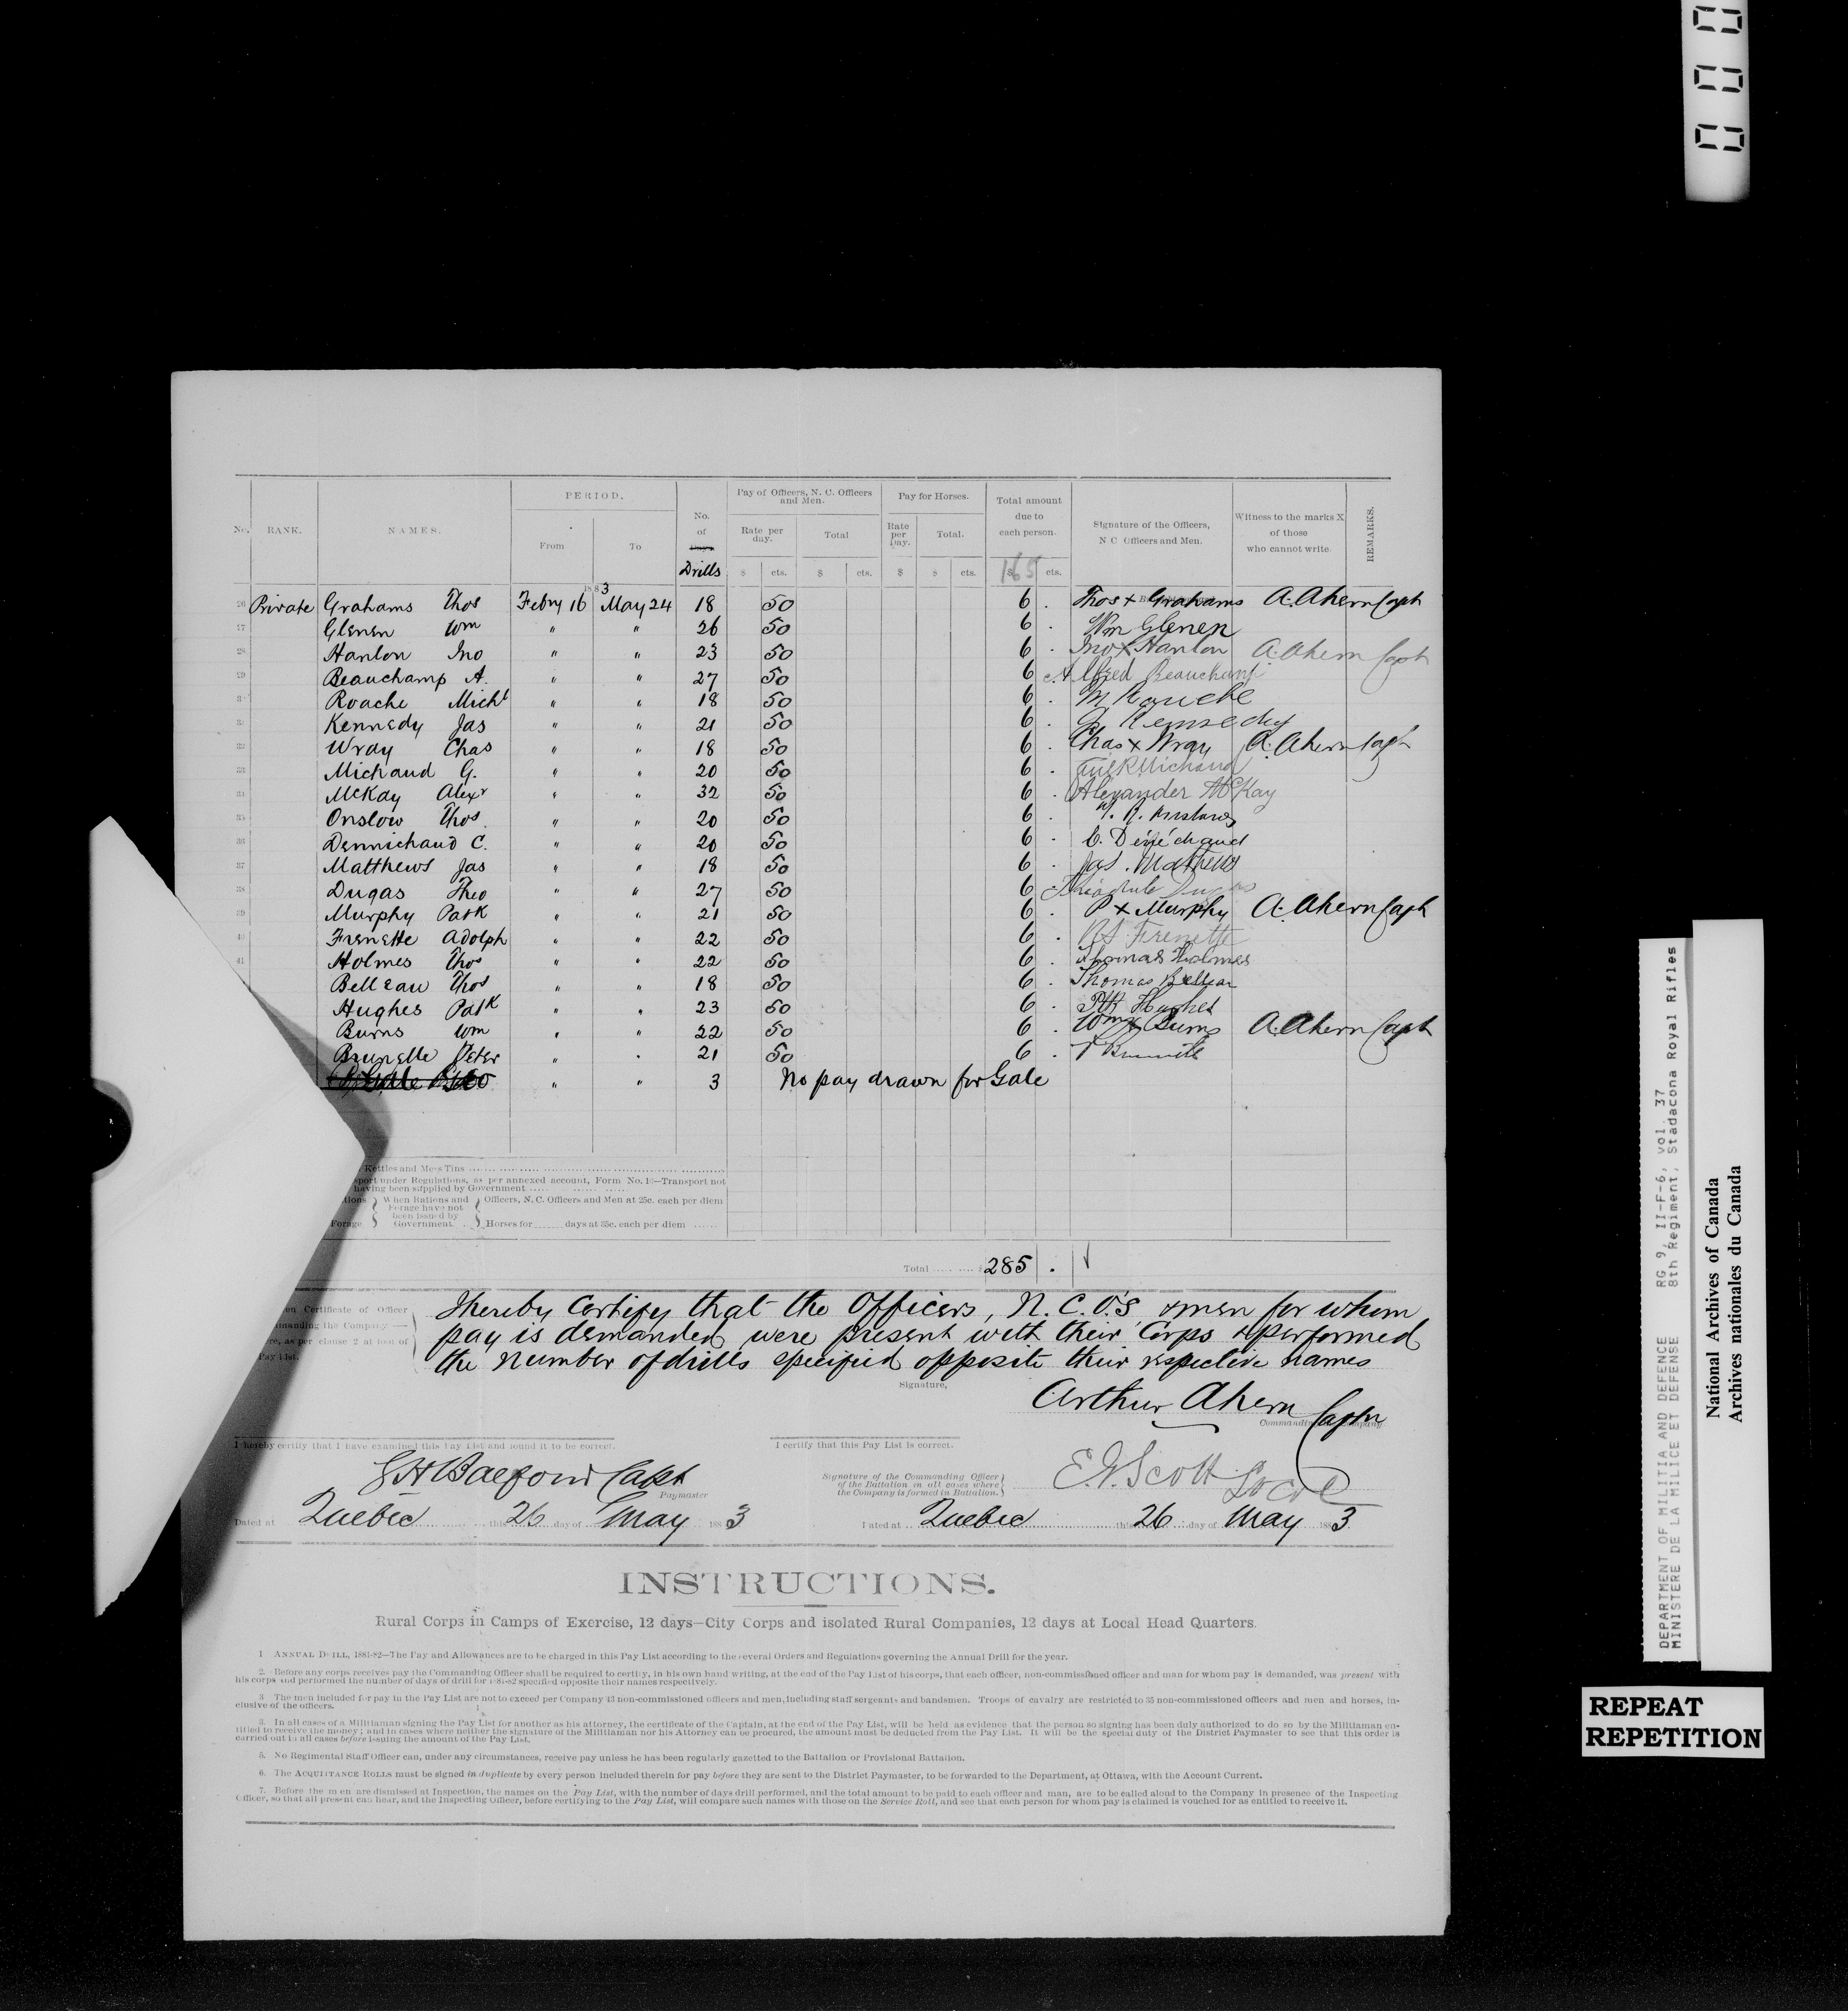 No. RANK. NAMES. PERIOD. From To No. of Days Drills Pay of Officers, N. C. Officers and Men. Rate per day. Total Pay for Horses. Rate per Day. Total. Total amount due to each person. Signature of the Officers, N C Officers and Men. Witness to the marks X of those who cannot write. REMARKS.
$ cts. $ cts. $ $ cts. $ cts.
165
1883
26 Private Grahams Thos Febry 16 May 24 18 50 6 . Thos x Grahams A. Ahern Capt
27 Glenen Wm " " 26 50 6 . Wm Glenen
28 Hanlon Jno " " 23 50 6 . Jno x Hanlon A. Ahern Capt
29 Beauchamp A. " " 27 50 6 Alfred Beauchamp
Roache Michl " " 18 50 6 . M Rouche
Kennedy Jas " " 21 50 6 . J Kennedy
32 Wray Chas " " 18 50 6 . Chas x Wray A. Ahern Capt
33 Michaud G. " " 20 50 6 . Michaud
34 McKay Alexr " " 32 50 6 . Alexander McKay
35 Onslow Thos. " " 20 50 6 .
36 Dennichaud C. " " 20 50 6 . C.
37 Matthews Jas " " 18 50 6 . Jas. Mathews
38 Dugas Theo " " 27 50 6 . Dugas
39 Murphy Patk " " 21 50 6 . P x Murphy A. Ahern Capt
40 Frenette Adolph " " 22 50 6 . Frenette
41 Holmes Thos " " 22 50 6 . Thomas Holmes
Belleau Thos " " 18 50 6 . Thomas Belleau
Hughes Patk " " 23 50 6 . Ptk Hughes
Burns Wm " " 22 50 6 . Wm x Burns A. Ahern Capt
Brunelle Peter " " 21 50 6 . P Brunelle
" " 3 No pay drawn for Gale
Kettles and Mess Tins
sport under Regulations, as per annexed account, Form No. 10—Transport not
having been supplied by Government
tions When Rations and Forage have not been issued by Government. Officers, N. C. Officers and Men at 25c. each per diem
Forage Horses for days at 35c. each per diem
Total 285 .
en Certificate of Officer
manding the Company—
re, as per clause 2 at foot of
Pay List.
I hereby Certify that the Officers, N.C.O.'s & men for whom
pay is demanded were present with their Corps & performed
the number of drills specified opposite their respective names
Signature,
Arthur Ahern Captn
I hereby certify that I have examined this Pay List and found it to be correct.
I certify that this Pay List is correct.
G H Balfour Capt
Paymaster
Signature of the Commanding Officer
of the Battalion in all cases where
the Company is formed in Battalion.
Scott
Dated at Quebec this 26 day of May 1883
Dated at Quebec this 26 day of May 1883
INSTRUCTIONS.
Rural Corps in Camps of Exercise, 12 days—City Corps and isolated Rural Companies, 12 days at Local Head Quarters.
1 ANNUAL DRILL, 1881-82—The Pay and Allowances are to be charged in this Pay List according to the several Orders and Regulations governing the Annual Drill for the year.
2. Before any corps receives pay the Commanding Officer shall be required to certify, in his own hand writing, at the end of the Pay List of his corps, that each officer, non-commissioned officer and man for whom pay is demanded, was present with
his corps and performed the number of days of drill for 1881-82 specified opposite their names respectively.
3 The men included for pay in the Pay List are not to exceed per Company 43 non-commissioned officers and men, including staff sergeants and bandsmen. Troops of cavalry are restricted to 35 non-commissioned officers and men and horses, in-
clusive of the officers.
3. In all cases of a Militiaman signing the Pay List for another as his attorney, the certificate of the Captain, at the end of the Pay List, will be held as evidence that the person so signing has been duly authorized to do so by the Militiaman en-
titled to receive the money; and in cases where neither the signature of the Militiaman nor his Attorney can be procured, the amount must be deducted from the Pay List. It will be the special duty of the District Paymaster to see that this order is
carried out in all cases before issuing the amount of the Pay List.
5. No Regimental Staff Officer can, under any circumstances, receive pay unless he has been regularly gazetted to the Battalion or Provisional Battalion.
6. The ACQUITTANCE ROLLS must be signed in duplicate by every person included therein for pay before they are sent to the District Paymaster, to be forwarded to the Department, at Ottawa, with the Account Current.
7. Before the men are dismissed at Inspection, the names on the Pay List, with the number of days drill performed, and the total amount to be paid to each officer and man, are to be called aloud to the Company in presence of the Inspecting
Officer, so that all present can hear, and the Inspecting Officer, before certifying to the Pay List, will compare such names with those on the Service Roll, and see that each person for whom pay is claimed is vouched for as entitled to receive it.
DEPARTMENT OF MILITIA AND DEFENCE RG 9, II-F-6, vol. 37
MINISTERE DE LA MILICE ET DEFENSE 8th Regiment, Stadacona Royal Rifles
National Archives of Canada
Archives nationales du Canada
REPEAT
REPETITION